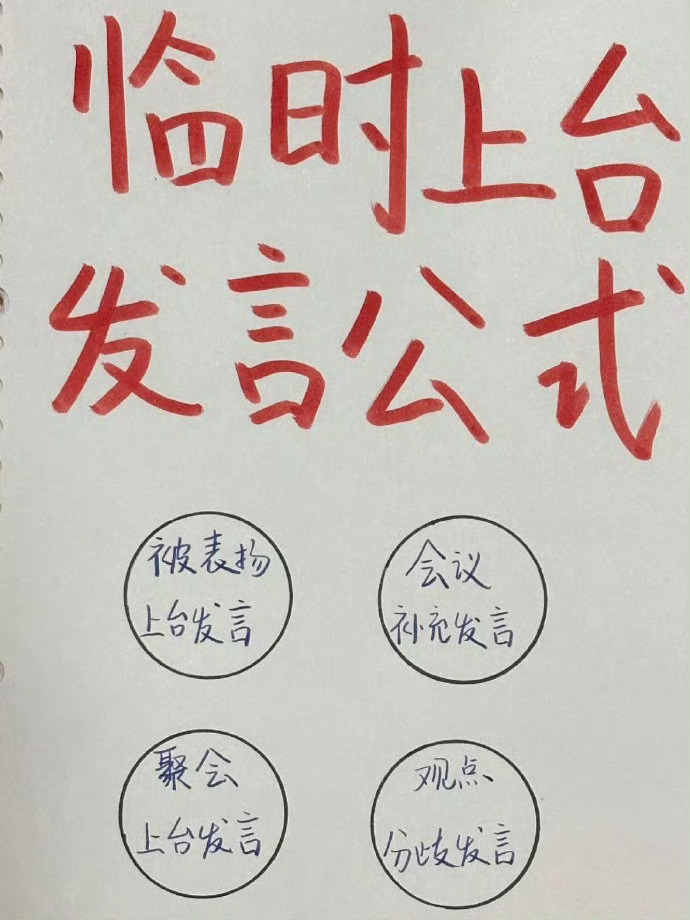 临时上台
发言公式
被表扬
上台发言
会议
补充发言
聚会
上台发言
观点
分歧发言